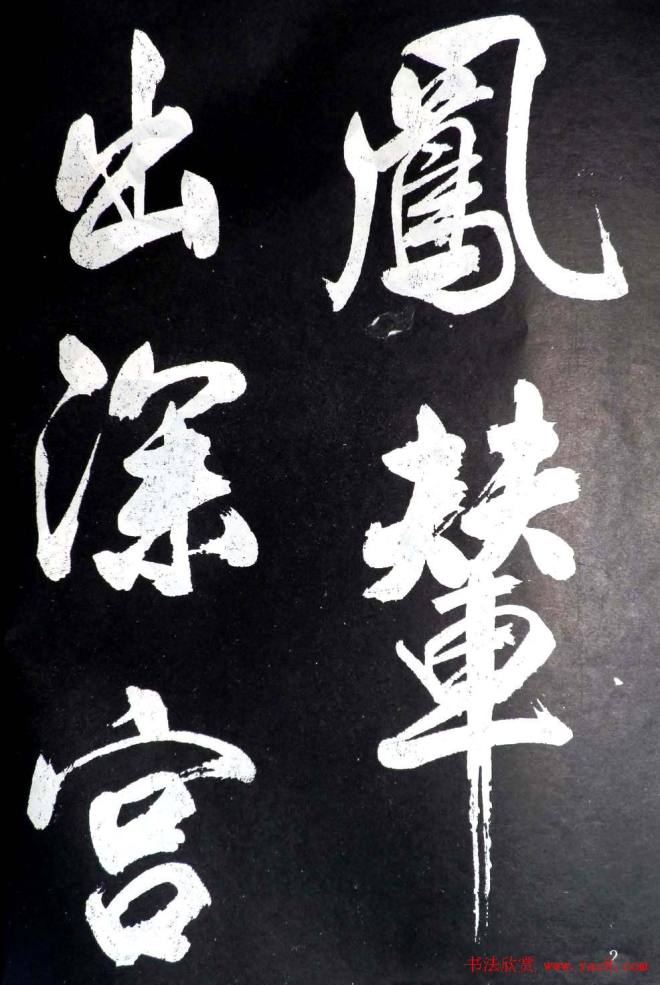 鳳輦
出深宫
2
书法欣赏 www.yac8.com